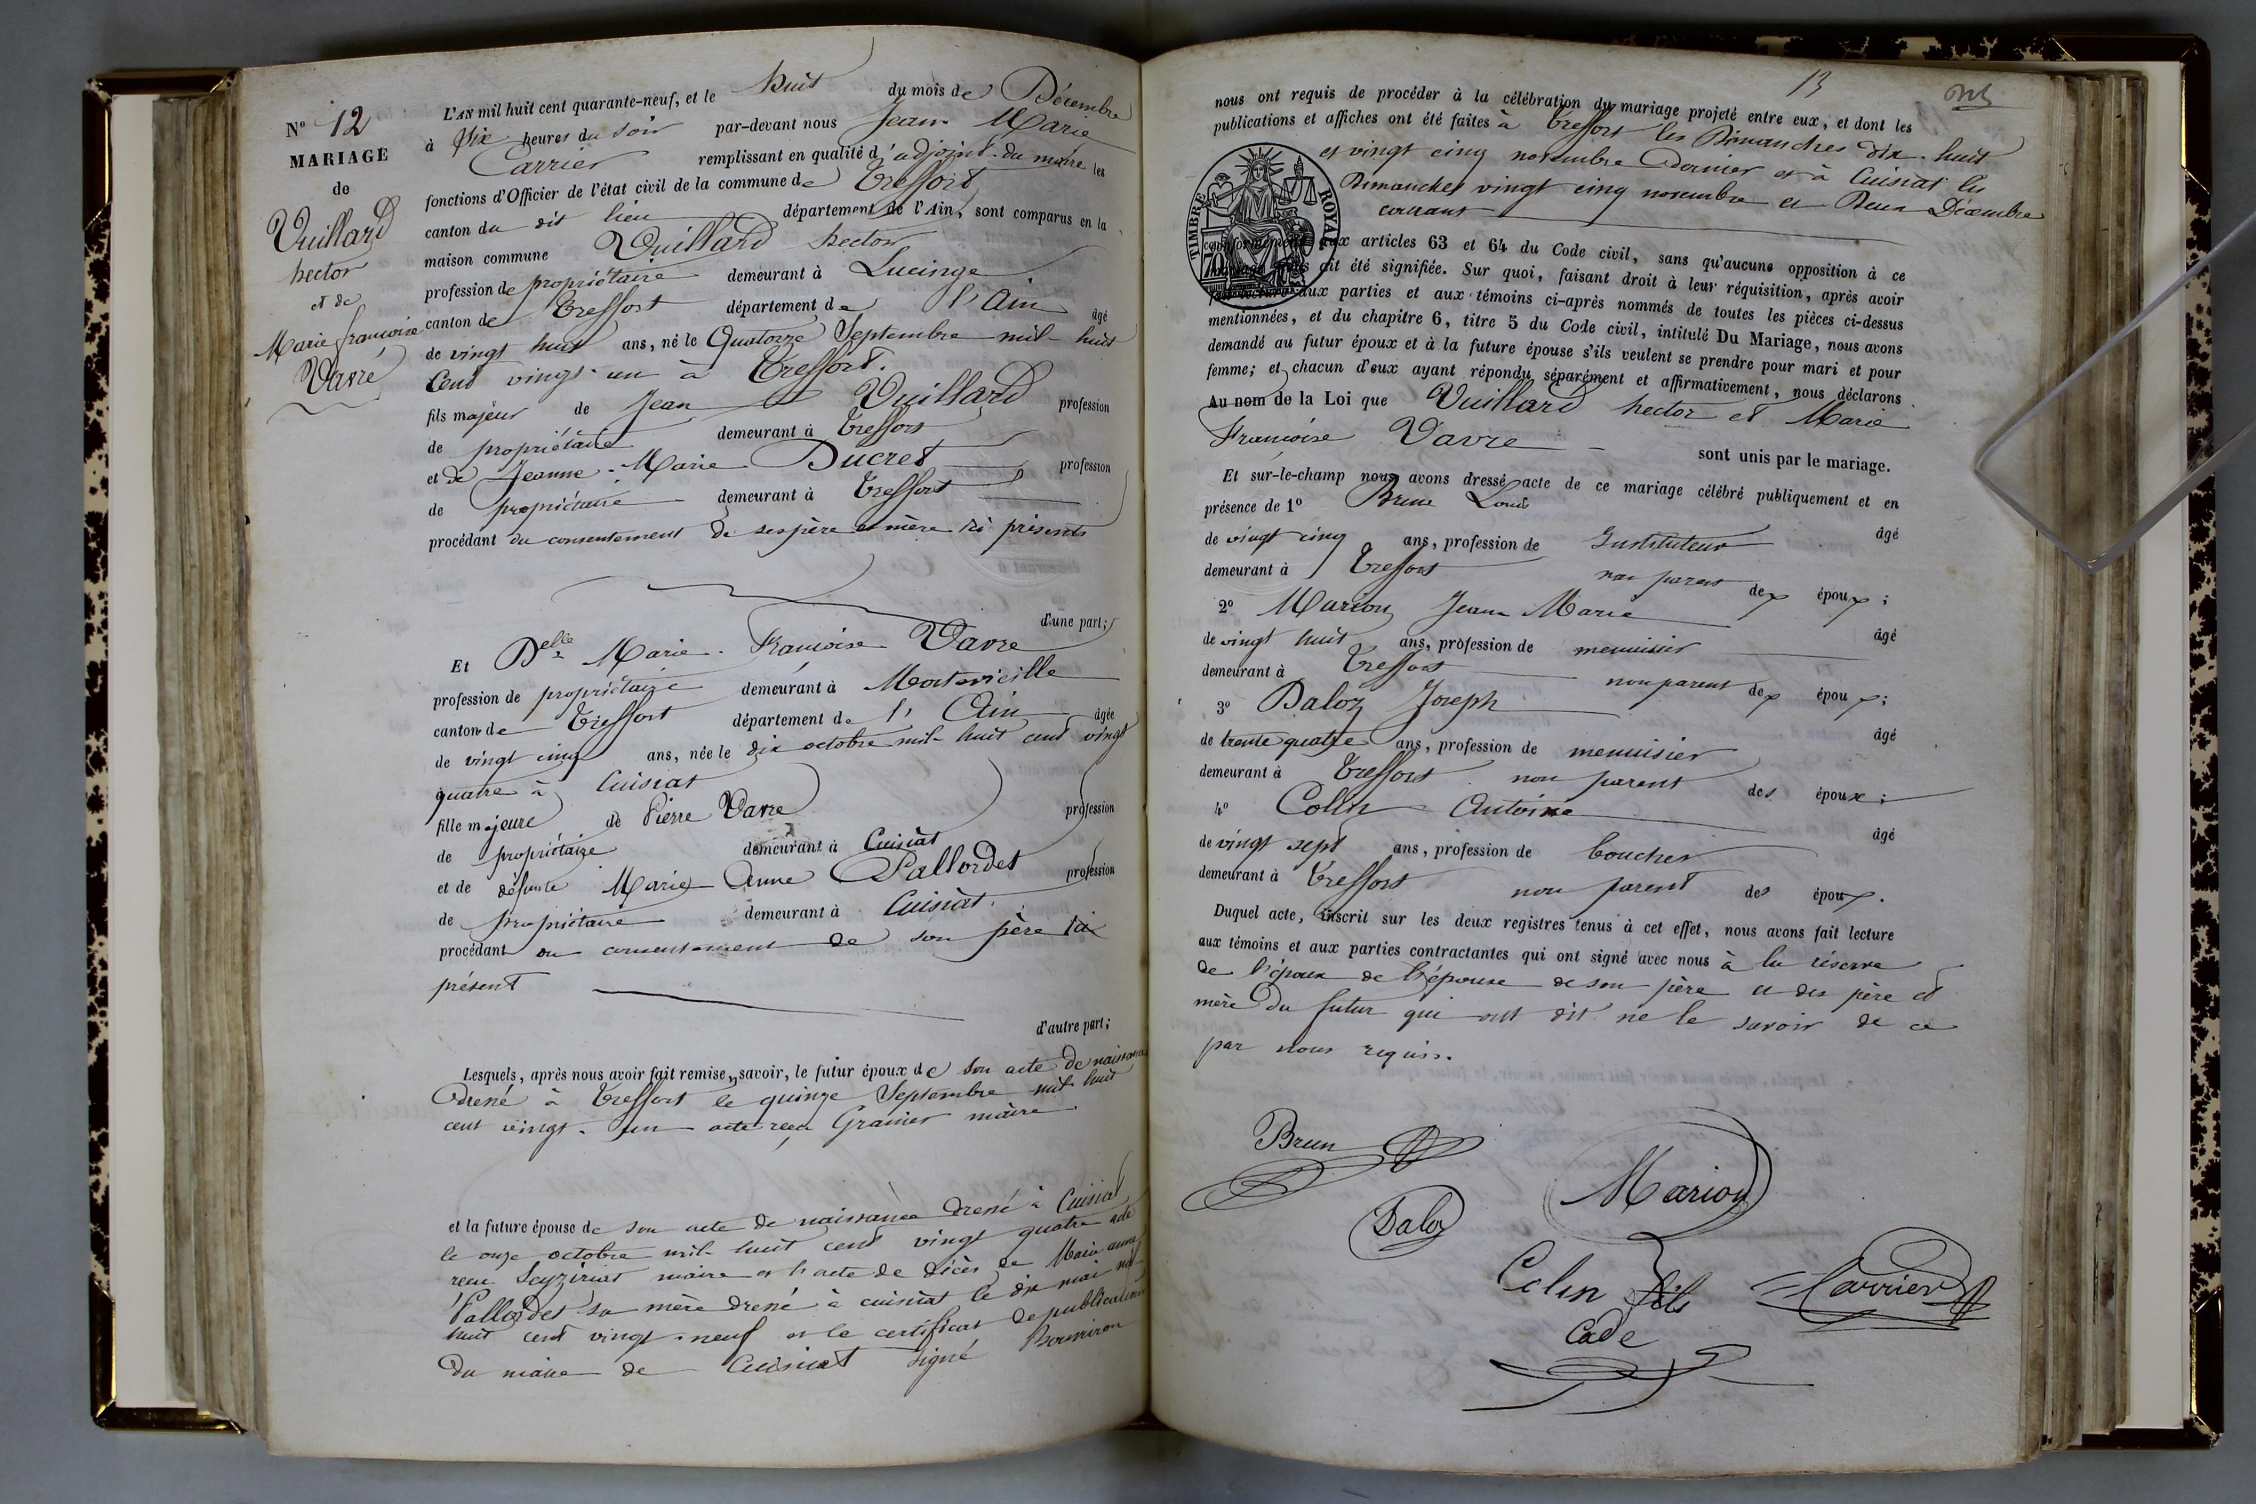 N° 12
MARIAGE
de
Vuillard
hector
et de
Marie françoise
Vavre
L'AN mil huit cent quarante-neuf, et le huit du mois de Décembre
à Six heures du soir par-devant nous Jean Marie
Carrier remplissant en qualité d'adjoint du maire les
fonctions d'Officier de l'état civil de la commune de Treffort
canton du dit lieu département de l'Ain, sont comparus en la
maison commune Vuillard hector
profession de propriétaire demeurant à Lucinge
canton de Treffort département de l'Ain âgé
de vingt huit ans, né le Quatorze Septembre mil huit
Cent vingt-un à Treffort.
fils majeur de Jean Vuillard profession
de propriétaire demeurant à Treffort
et de Jeanne-Marie Ducret profession
de propriétaire demeurant à Treffort
procédant du consentement de ses père et mère ici présents
d'une part;
Et Delle Marie Françoise Vavre
profession de propriétaire demeurant à Montevieille
canton de Treffort département de l'Ain âgée
de vingt cinq ans, née le dix octobre mil huit cent vingt
quatre à Cuisiat
fille majeure de Pierre Vavre profession
de propriétaire demeurant à Cuisiat
et de défunte Marie Anne Pallordet profession
de propriétaire demeurant à Cuisiat.
procédant du consentement de son père ici
présent
d'autre part;
Lesquels, après nous avoir fait remise, savoir, le futur époux de son acte de naissance
dressé à Treffort le quinze Septembre mil huit
cent vingt-un acte reçu Grainier maire
et la future épouse de son acte de naissance dressé à Cuisiat
le onze octobre mil huit cent vingt quatre acte
reçu Seyziriat maire et l'acte de décès de Marie anne
Pallordet sa mère dressé à cuisiat le dix mai mil
huit cent vingt-neuf et le certificat de publication
du maire de Cuisiat signé
13
nous ont requis de procéder à la célébration du mariage projeté entre eux, et dont les
publications et affiches ont été faites à Treffort les Dimanches dix-huit
et vingt cinq novembre Dernier et à Cuisiat les
Dimanches vingt cinq novembre et Deux Décembre
courant
TIMBRE ROYAL
70
conformément aux articles 63 et 64 du Code civil, sans qu'aucune opposition à ce
mariage nous ait été signifiée. Sur quoi, faisant droit à leur réquisition, après avoir
fait lecture aux parties et aux témoins ci-après nommés de toutes les pièces ci-dessus
mentionnées, et du chapitre 6, titre 5 du Code civil, intitulé Du Mariage, nous avons
demandé au futur époux et à la future épouse s'ils veulent se prendre pour mari et pour
femme; et chacun d'eux ayant répondu séparément et affirmativement, nous déclarons
Au nom de la Loi que Vuillard hector et Marie
Françoise Vavre sont unis par le mariage.
Et sur-le-champ nous avons dressé acte de ce mariage célébré publiquement et en
présence de 1° Brun Louis âgé
de vingt cinq ans, profession de Instituteur
demeurant à Treffort non parent des époux;
2° Marion Jean Marie âgé
de vingt huit ans, profession de menuisier
demeurant à Treffort non parent des époux;
3° Daloz Joseph âgé
de trente quatre ans, profession de menuisier
demeurant à Treffort non parent des époux;
4° Colin Antoine âgé
de vingt sept ans, profession de boucher
demeurant à Treffort non parent des époux.
Duquel acte, inscrit sur les deux registres tenus à cet effet, nous avons fait lecture
aux témoins et aux parties contractantes qui ont signé avec nous à la réserve
de l'époux de l'épouse de son père et des père et
mère du futur qui ont dit ne le savoir de ce
par nous requis.
Brun
Marion
Daloz
Colin fils
Carrier
Cade